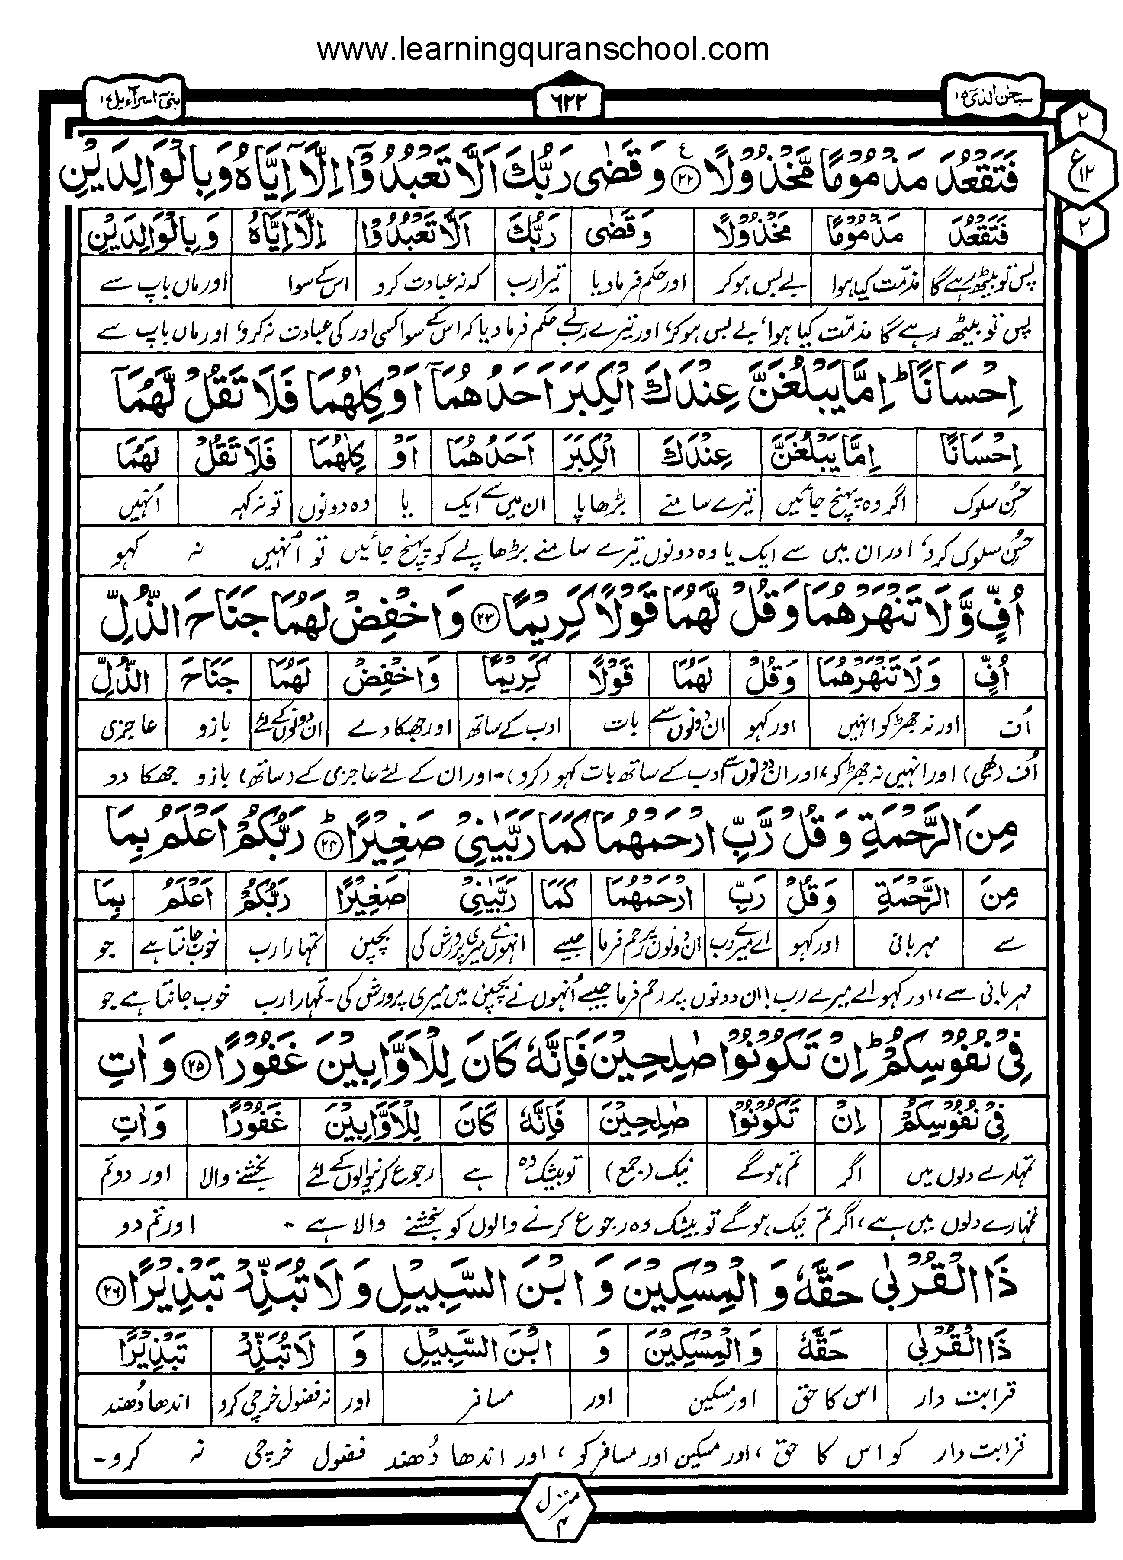 www.learningquranschool.com
سبحن الذی ۱۵
۶۲۲
بنی اسرآءیل ۱۷
فَتَقْعُدَ مَذْمُوْمًا مَّخْذُوْلًا ﴿۲۲﴾ وَ قَضٰى رَبُّكَ اَلَّا تَعْبُدُوْۤا اِلَّاۤ اِیَّاهُ وَ بِالْوَالِدَیْنِ
۲
ع
۱۲
۲
فَتَقْعُدَ مَذْمُوْمًا مَخْذُوْلًا وَ قَضٰى رَبُّكَ اَلَّا تَعْبُدُوْا اِلَّاۤ اِیَّاهُ وَ بِالْوَالِدَیْنِ
پس تو بیٹھ رہے گا مذمت کیا ہوا بے بس ہو کر اور حکم فرما دیا تیرا رب کہ نہ عبادت کرو اس کے سوا اور ماں باپ سے
پس تو بیٹھ رہے گا مذمّت کیا ہوا، بے بس ہو کر، اور تیرے رب نے حکم فرما دیا کہ اس کے سوا کسی اور کی عبادت نہ کرو، اور ماں باپ سے
اِحْسَانًا ؕ اِمَّا یَبْلُغَنَّ عِنْدَكَ الْكِبَرَ اَحَدُهُمَاۤ اَوْ كِلٰهُمَا فَلَا تَقُلْ لَّهُمَاۤ
اِحْسَانًا اِمَّا یَبْلُغَنَّ عِنْدَكَ الْكِبَرَ اَحَدُهُمَا اَوْ كِلٰهُمَا فَلَا تَقُلْ لَهُمَا
حسن سلوک اگر وہ پہنچ جائیں تیرے سامنے بڑھاپا ان میں سے ایک یا وہ دونوں تو نہ کہہ انہیں
حسن سلوک کرو، اور ان میں سے ایک یا وہ دونوں تیرے سامنے بڑھاپے کو پہنچ جائیں تو اُنہیں نہ کہو
اُفٍّ وَّ لَا تَنْهَرْهُمَا وَ قُلْ لَّهُمَا قَوْلًا كَرِیْمًا ﴿۲۳﴾ وَ اخْفِضْ لَهُمَا جَنَاحَ الذُّلِّ
اُفٍّ وَ لَا تَنْهَرْهُمَا وَ قُلْ لَهُمَا قَوْلًا كَرِیْمًا وَ اخْفِضْ لَهُمَا جَنَاحَ الذُّلِّ
اُف اور نہ جھڑکو انہیں اور کہو ان دونوں سے بات ادب کے ساتھ اور جھکا دے ان دونوں کے لئے بازو عاجزی
اُف (بھی) اور انہیں نہ جھڑکو، اور ان دونوں سے ادب کے ساتھ بات کہو (کرو)۔ اور ان کے لئے عاجزی کے (ساتھ) بازو جھکا دو
مِنَ الرَّحْمَةِ وَ قُلْ رَّبِّ ارْحَمْهُمَا كَمَا رَبَّیٰنِیْ صَغِیْرًا ﴿۲۴﴾ؕ رَبُّكُمْ اَعْلَمُ بِمَا
مِنَ الرَّحْمَةِ وَ قُلْ رَبِّ ارْحَمْهُمَا كَمَا رَبَّیٰنِیْ صَغِیْرًا رَبُّكُمْ اَعْلَمُ بِمَا
سے مہربانی اور کہو اے میرے رب ان دونوں پر رحم فرما جیسے انہوں نے میری پرورش کی بچپن تمہارا رب خوب جانتا ہے جو
مہربانی سے، اور کہو اے میرے رب! ان دونوں پر رحم فرما جیسے اُنہوں نے بچپن میں میری پرورش کی۔ تمہارا رب خوب جانتا ہے جو
فِیْ نُفُوْسِكُمْ ؕ اِنْ تَكُوْنُوْا صٰلِحِیْنَ فَاِنَّهٗ كَانَ لِلْاَوَّابِیْنَ غَفُوْرًا ﴿۲۵﴾ وَ اٰتِ
فِیْ نُفُوْسِكُمْ اِنْ تَكُوْنُوْا صٰلِحِیْنَ فَاِنَّهٗ كَانَ لِلْاَوَّابِیْنَ غَفُوْرًا وَ اٰتِ
تمہارے دلوں میں اگر تم ہو گے نیک (جمع) تو بیشک وہ ہے رجوع کرنیوالوں کے لئے بخشنے والا اور دو تم
تمہارے دلوں میں ہے، اگر تم نیک ہو گے تو بیشک وہ رجوع کرنے والوں کو بخشنے والا ہے۔ اور تم دو
ذَا الْقُرْبٰى حَقَّهٗ وَ الْمِسْكِیْنَ وَ ابْنَ السَّبِیْلِ وَ لَا تُبَذِّرْ تَبْذِیْرًا ﴿۲۶﴾
ذَا الْقُرْبٰى حَقَّهٗ وَ الْمِسْكِیْنَ وَ ابْنَ السَّبِیْلِ وَ لَا تُبَذِّرْ تَبْذِیْرًا
قرابت دار اس کا حق اور مسکین اور مسافر اور نہ فضول خرچی کرو اندھا دُھند
قرابت دار کو اس کا حق، اور مسکین اور مسافر کو، اور اندھا دُھند فضول خرچی نہ کرو۔
منزل
۴